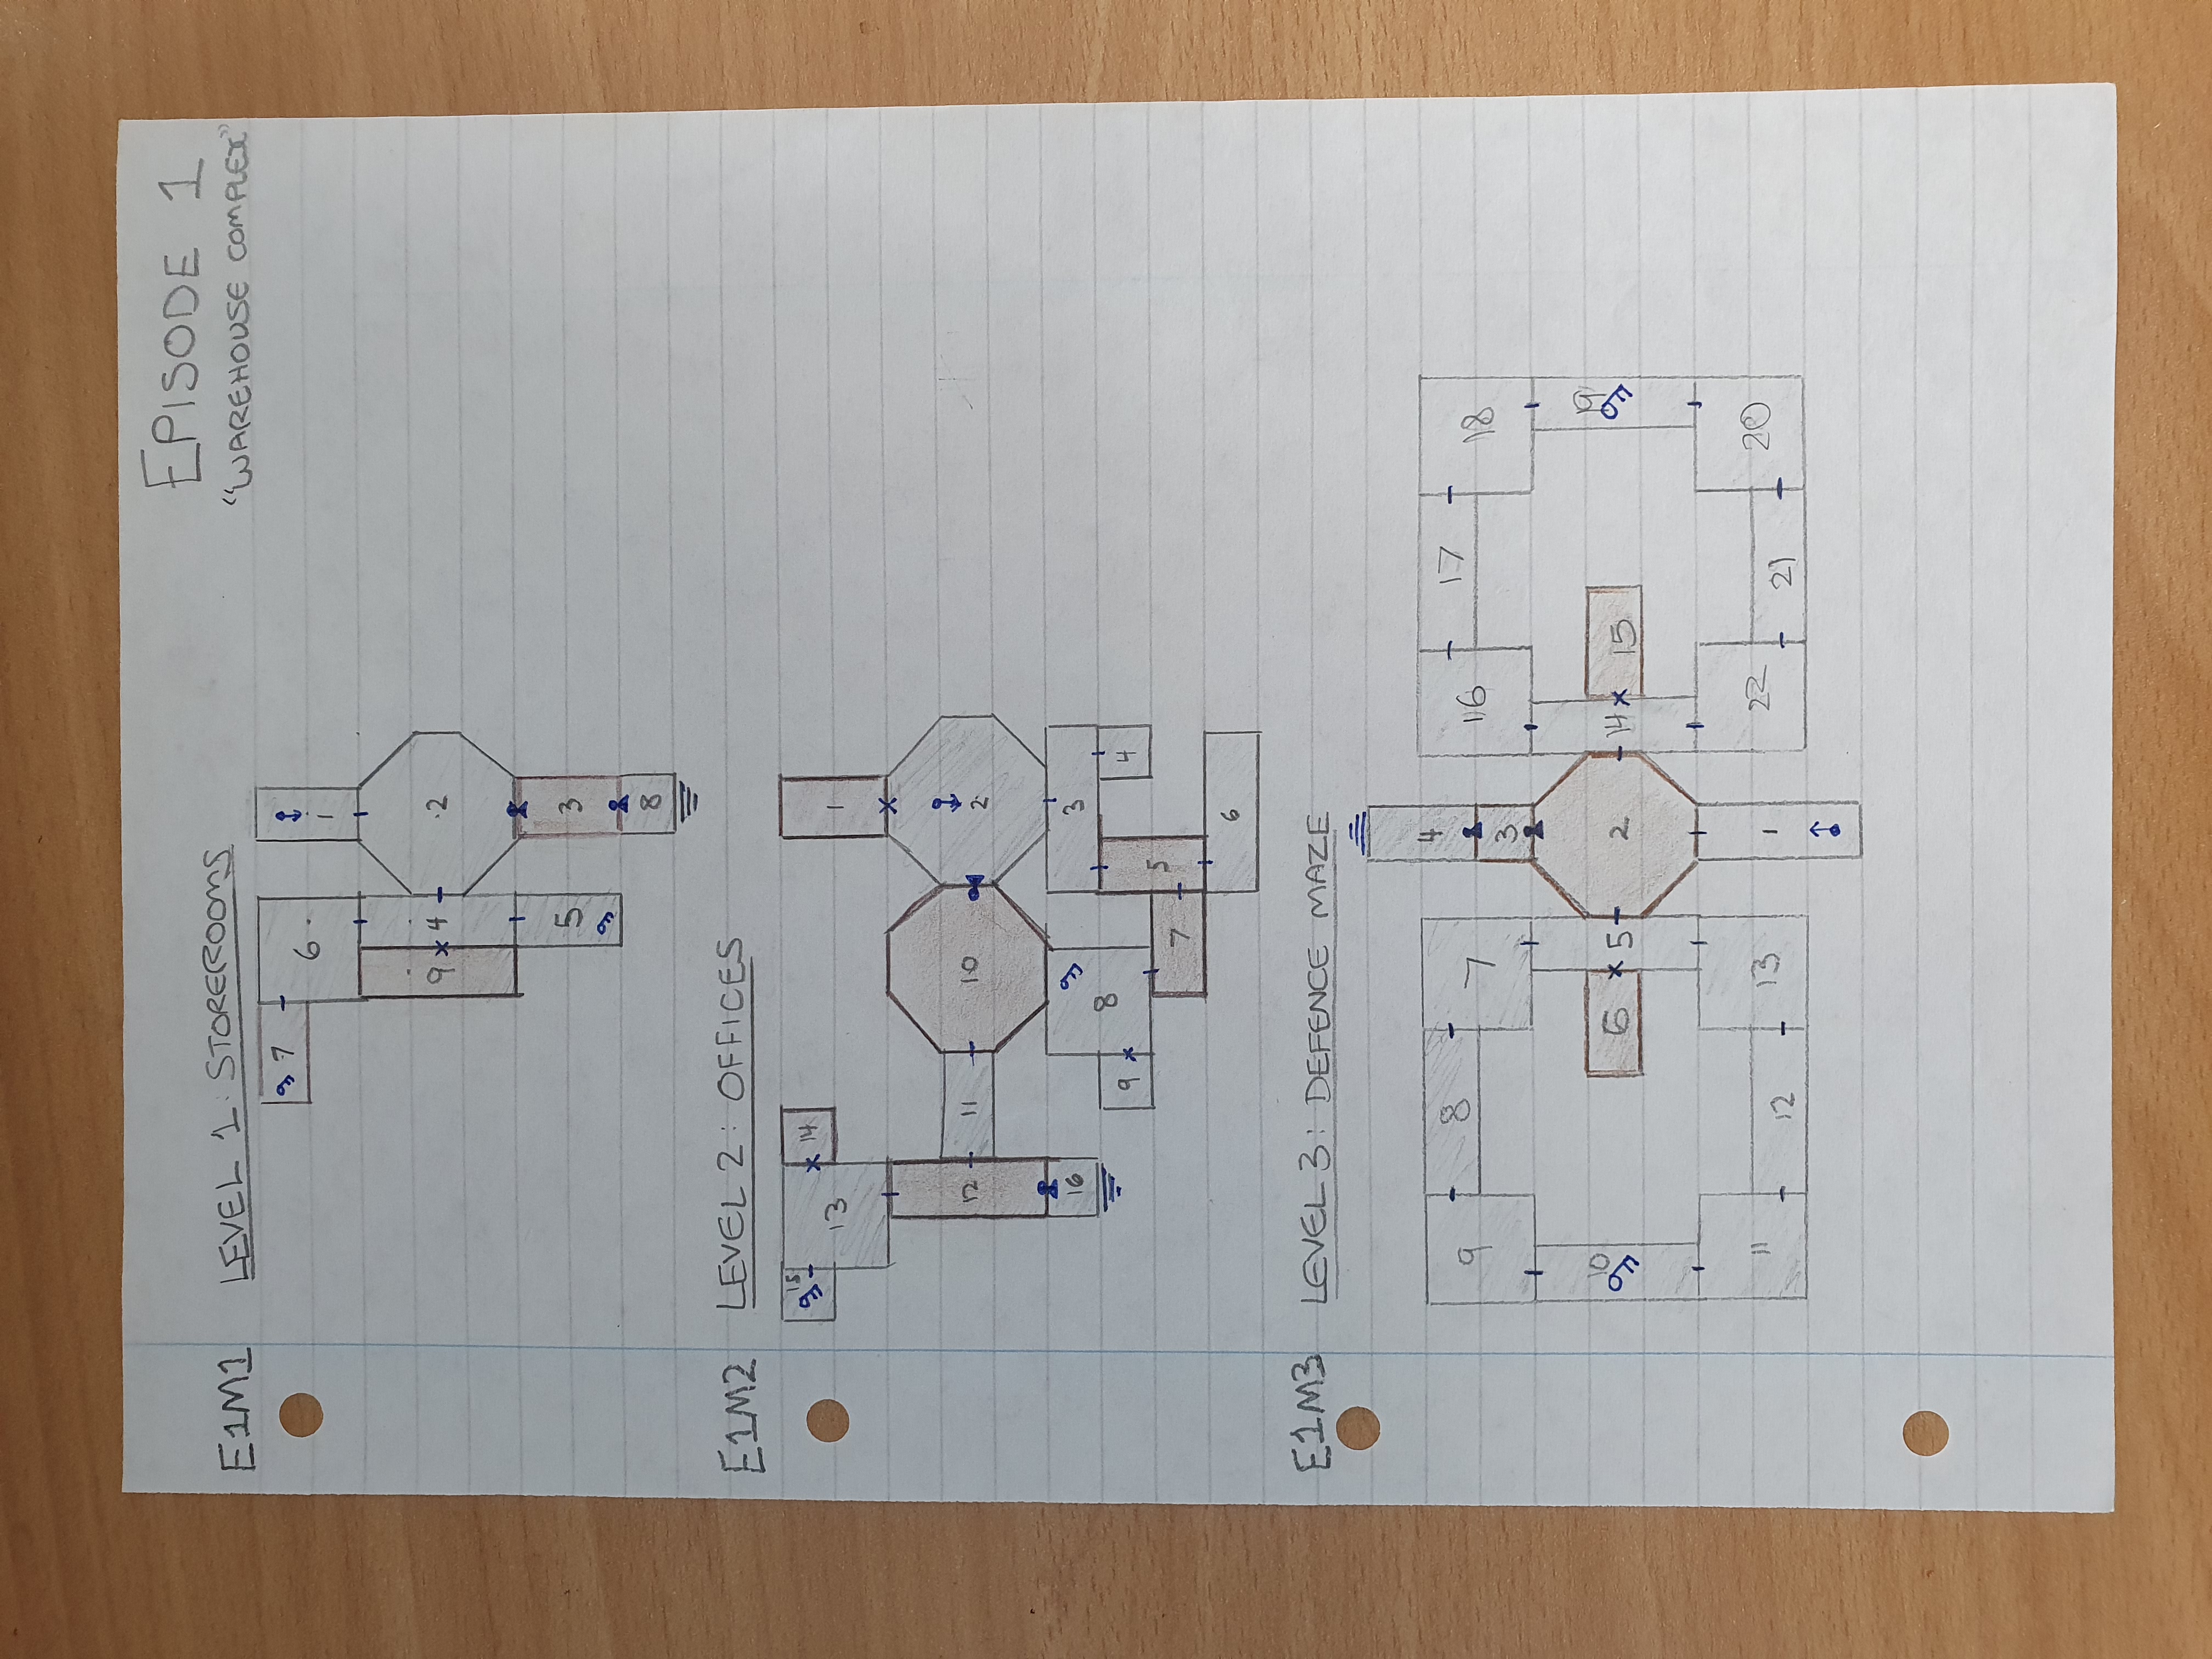 EPISODE 1
"WAREHOUSE COMPLEX"
E1M1 LEVEL 1: STOREROOMS
7 6 1
9 4 2
5 3
8
E1M2 LEVEL 2: OFFICES
15 13 14 1
12 11 10 2
16 8 3
9 4
7 5
6
E1M3 LEVEL 3: DEFENCE MAZE
4
9 8 7 16 17 18
3
10 6 5 2 14 15 19
11 12 13 1 22 21 20